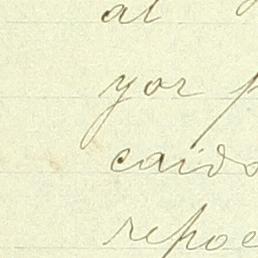 al
yor p
caido
repo